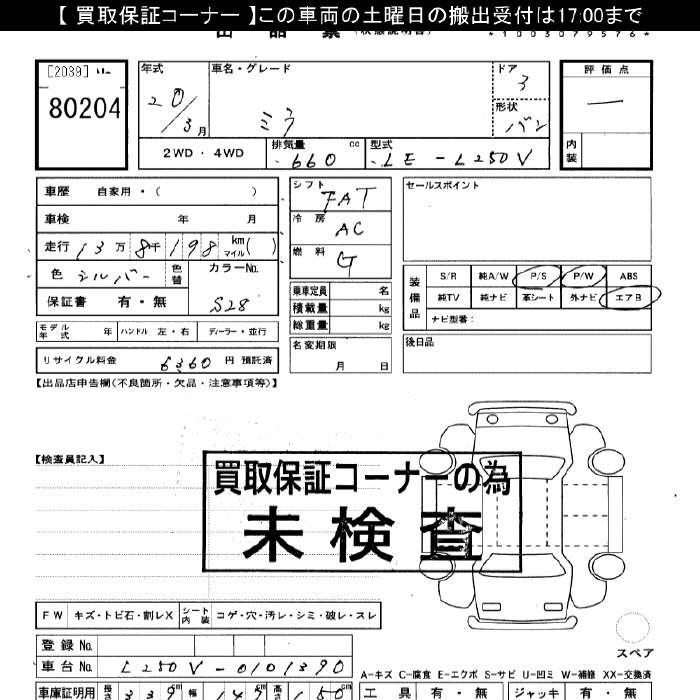 【 買取保証コーナー 】この車両の土曜日の搬出受付は17:00まで
*1003079576*
[2039]
80204
年式 車名・グレード ドア 評価点
20/3月 ミラ 3 ー
形状 バン
内装
2WD ・ 4WD 排気量 660 cc 型式 LE - L250V
車歴 自家用・( )
車検 年 月
走行 13万8千198 km マイル ( )
色 シルバー 色替 カラーNo. S28
保証書 有・無
モデル年式 年 ハンドル 左・右 ディーラー・並行
リサイクル料金 6360 円 預託済
シフト FAT
冷房 AC
燃料 G
乗車定員 名
積載量 kg
総重量 kg
名変期限
月 日
セールスポイント
装備品 S/R 純A/W P/S P/W ABS
純TV 純ナビ 革シート 外ナビ エアB
ナビ型番:
後日品
【出品店申告欄(不良箇所・欠品・注意事項等)】
【検査員記入】
買取保証コーナーの為
未検査
FW キズ・トビ石・割レX シート内装 コゲ・穴・汚レ・シミ・破レ・スレ
スペア
登録 No.
車台 No. L250V-0101390
A-キズ C-腐食 E-エクボ S-サビ U-凹ミ W-補修 XX-交換済
車庫証明用 長さ 339cm 幅 147cm 高さ 150cm
工具 有・無 ジャッキ 有・無